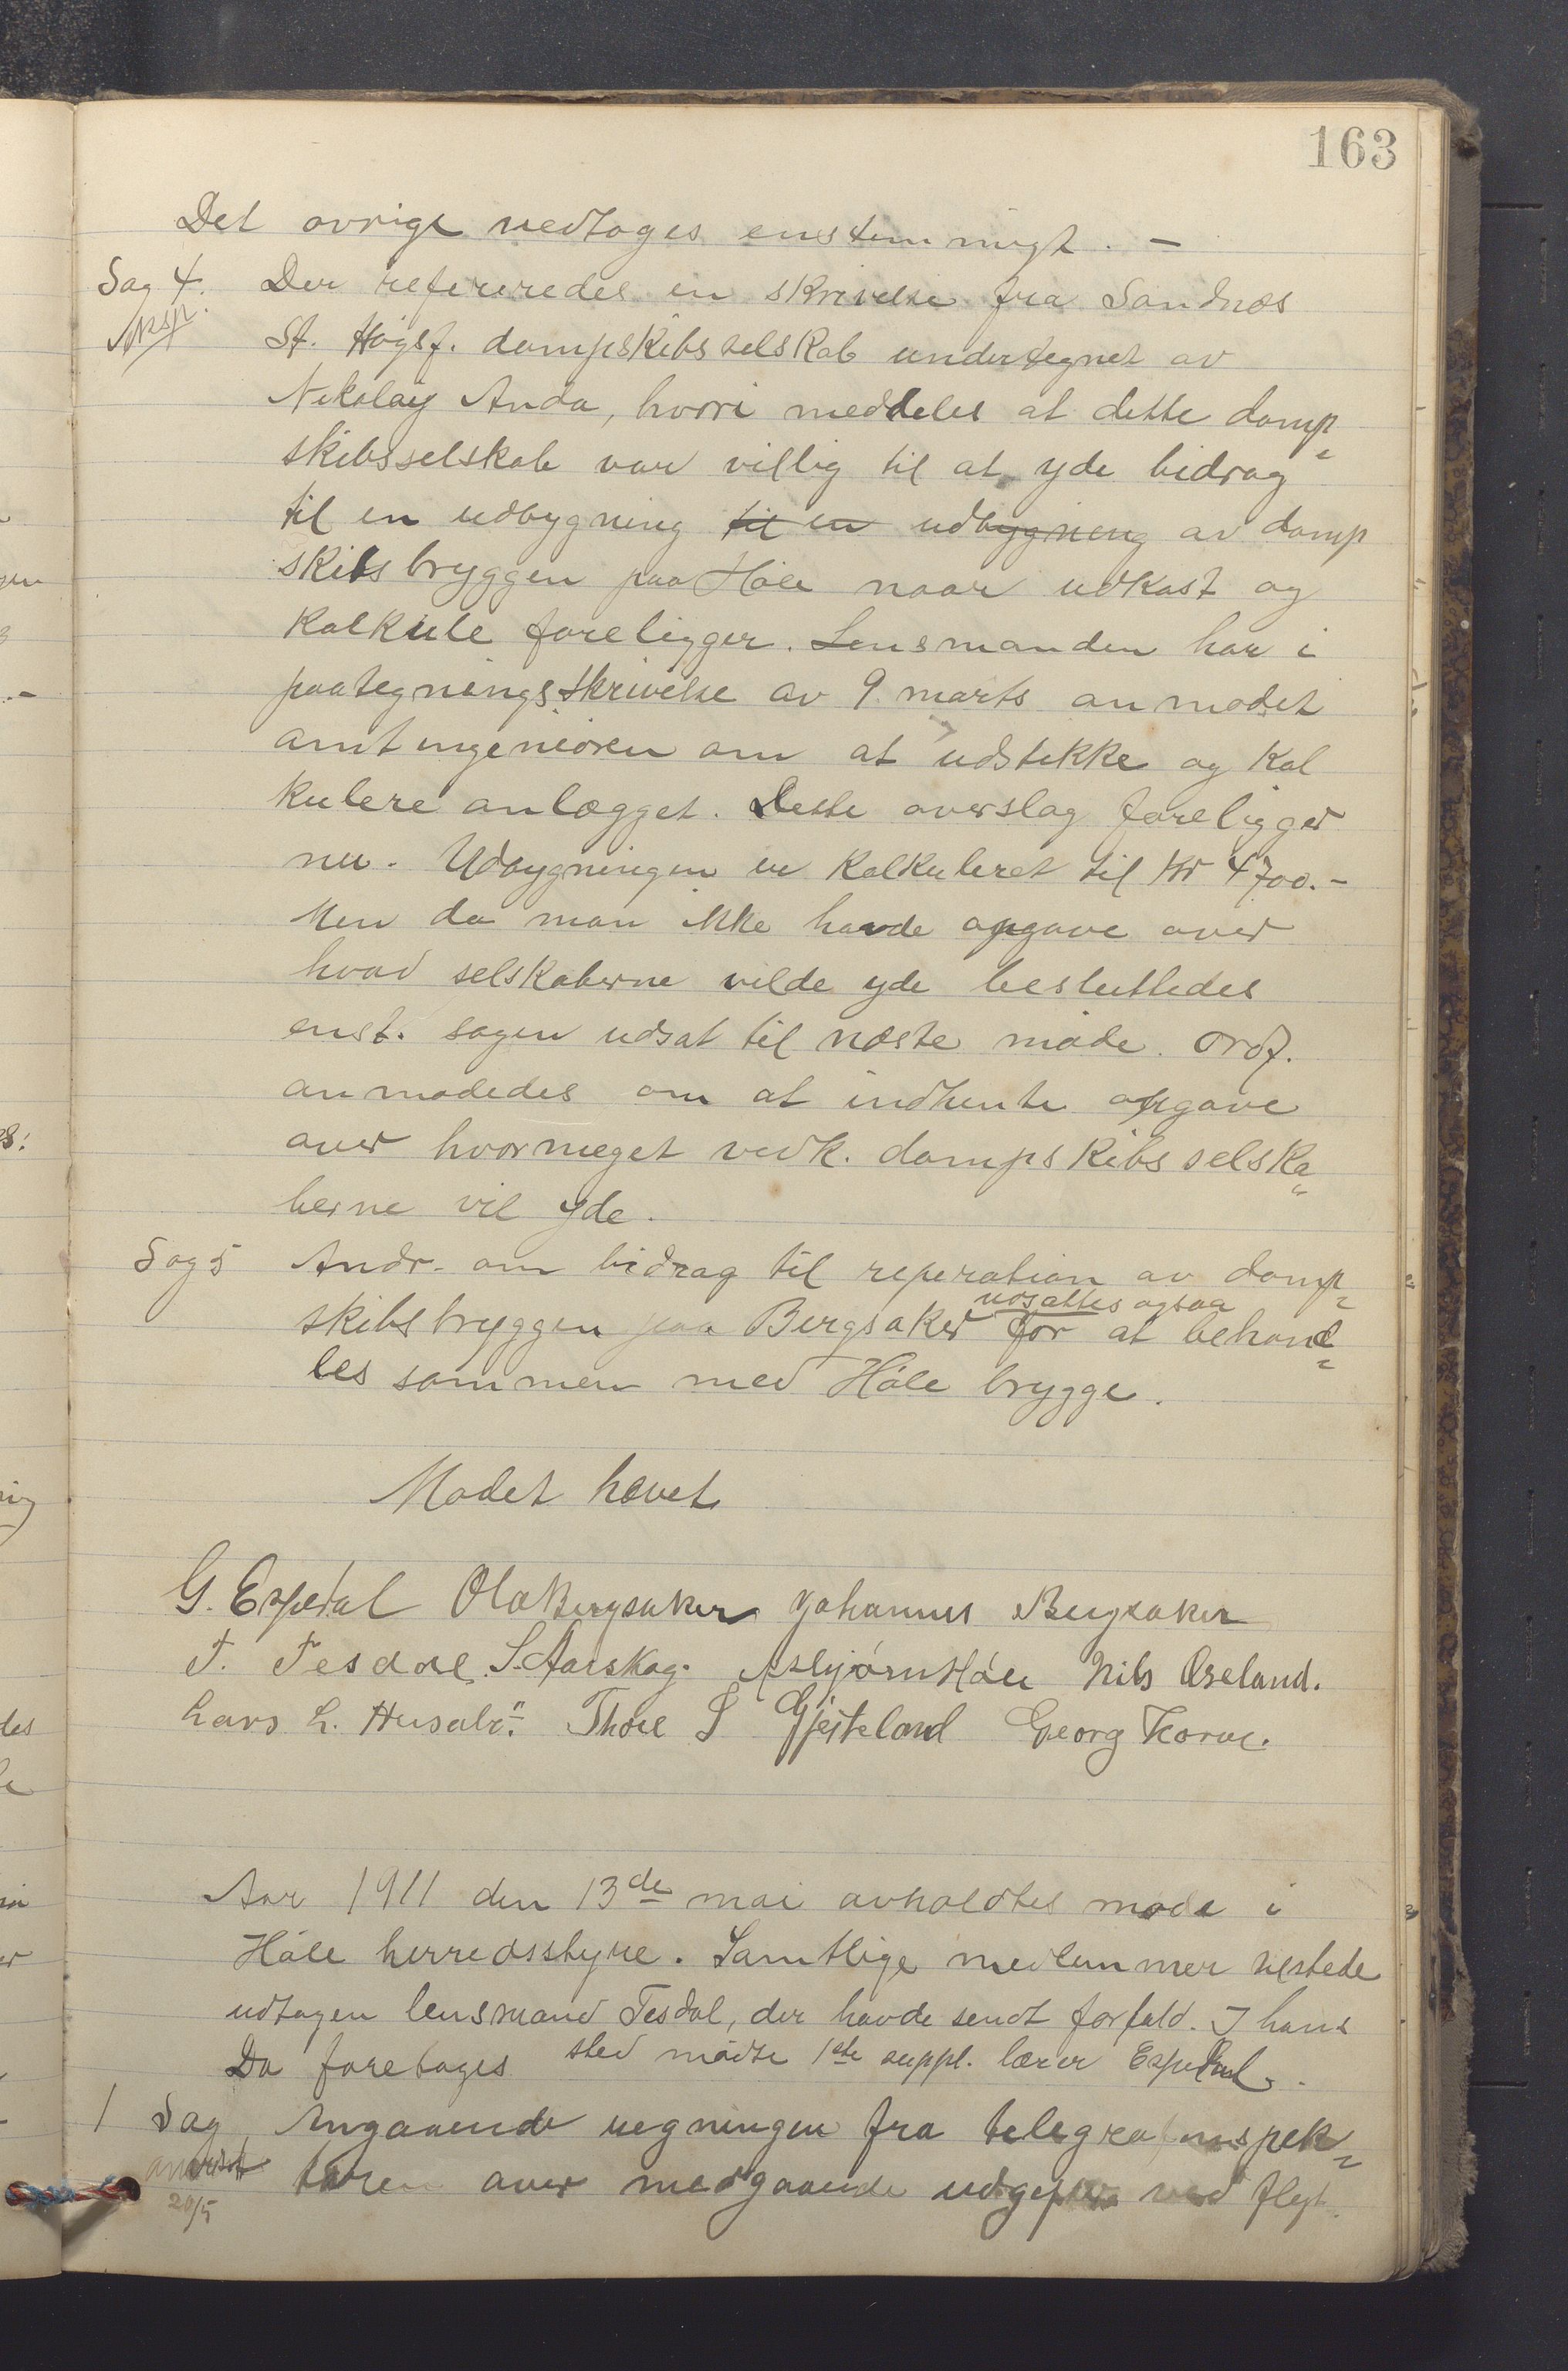 163
Det øvrige vedtoges enstemmigt. –
Sag 4. Der refereredes en skrivelse fra Sandnæs
St. Høgsf. dampskibsselskab undertegnet av
Nikolay Anda, hvori meddeles at dette damp-
skibsselskab var villig til at yde bidrag
til en udbygning til en udbygning av damp
skibsbryggen paa Høle naar udkast og
Kalkule foreligger. Lensmanden har i
paategningsskrivelse av 9 marts anmodet
amtingeniøren om at udstikke og kal
kulere anlægget. Dette overslag foreligger
nu. Udbygningen er kalkuleret til kr 4700.-
Men da man ikke havde opgave over
hvad selskaberne vilde yde besluttedes
enst. sagen udsat til næste møde. Ordf.
anmodedes om at indhente opgave
over hvormeget vedk. dampskibsselska-
berne vil yde.
Sag 5 Andr. om bidrag til reperation av damp-
udsattes ogsaa
skibsbryggen paa Bergsaker for at behand-
les sammen med Høle brygge.
Mødet hævet
G. Espedal Ola Bergsaker Johannes Bergsaker
T. Tesdal S. Aarskog. Asbjørn Høle Nils Øseland.
Lars L. Husabø. Thore S Gjesteland Georg
Aar 1911 den 13de mai avholdtes møde i
Høle herredsstyre. Samtlige medlemmer tilstede
udtagen lensmand Tesdal, der havde sendt forfald. I hans
sted mødte 1ste suppl. lærer Espedal.
Da foretoges
1 Sag Angaaende regningen fra telegrafinspek-
tøren over medgaaende udgifter ved flyt
20/5